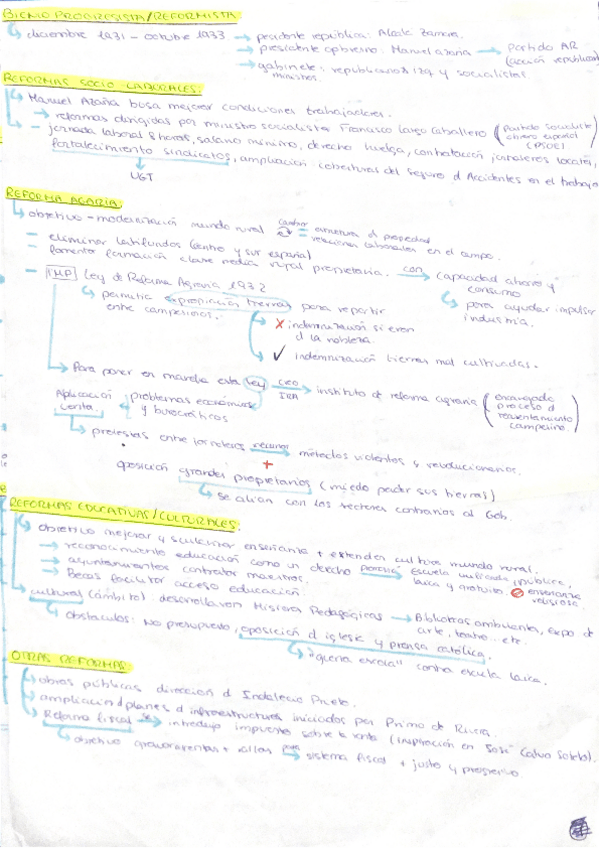 BIENIO PROGRESISTA/REFORMISTA
diciembre 1931 - octubre 1933 → presidente república: Alcalá Zamora.
→ presidente gobierno: Manuel azaña → Partido AR
(acción republicana)
→ gabinete: republicanos izq y socialistas
ministros.
REFORMAS SOCIO LABORALES:
Manuel Azaña busa mejorar condiciones trabajadores.
→ reformas dirigidas por ministro socialista Francisco Largo Caballero (Partido Socialista
obrero español
(PSOE)
- jornada laboral 8 horas, salario mínimo, derecho huelga, contratación jornaleros locales,
fortalecimiento sindicatos, ampliación coberturas del seguro d Accidentes en el trabajo
UGT
REFORMA AGARIA:
objetivo - modernización mundo rural cambiar = estructura d propiedad
= relaciones laborales en el campo.
- eliminar latifundos (centro y sur españa)
- fomentar formación clase media rural propietaria. con capacidad ahorro y
consumo
- IMP Ley de Reforma Agraria 1932
para ayudar impulsar
industria.
permitia expropiación tierras para repartir
entre campesinos.
✗ indemnización si eran
d la nobleza.
✓ indemnización tierras mal cultivadas.
Para poner en marcha esta ley creo → instituto d reforma agraria (encargado
IRA
proceso d
reasentamiento
campesino.)
Aplicación problemas económicos
lenta. y burocráticos
protestas entre jornaleros recurren métodos violentos y revolucionarios.
+
oposición grandes propietarios (miedo perder sus tierras)
se alian con los sectores contrarios al Gob.
REFORMAS EDUCATIVAS/CULTURALES:
objetivo mejorar y secularizar enseñanza + extender cultura mundo rural.
→ reconocimiento educación como un derecho Escuela unificada, pública,
laica y gratuita. enseñanza
religiosa.
→ ayuntamientos contratar maestros.
→ Becas facilitar acceso educación.
cultural (ámbito): desarrollaron Misiones Pedagógicas → Bibliotecas ambulantes, expo de
arte, teatro.. etc.
obstáculos: No presupuesto, oposición d iglesia y prensa católica.
"guerra escolar" contra escuela laica.
OTRAS REFORMAS:
obras públicas dirección d Indalecio Prieto.
ampliación d planes d infraestructuras iniciados por Primo de Rivera
Reforma fiscal se introdujo impuesto sobre la renta (inspiración en José Calvo Sotelo).
objetivo para sistema fiscal + justo y progresivo.